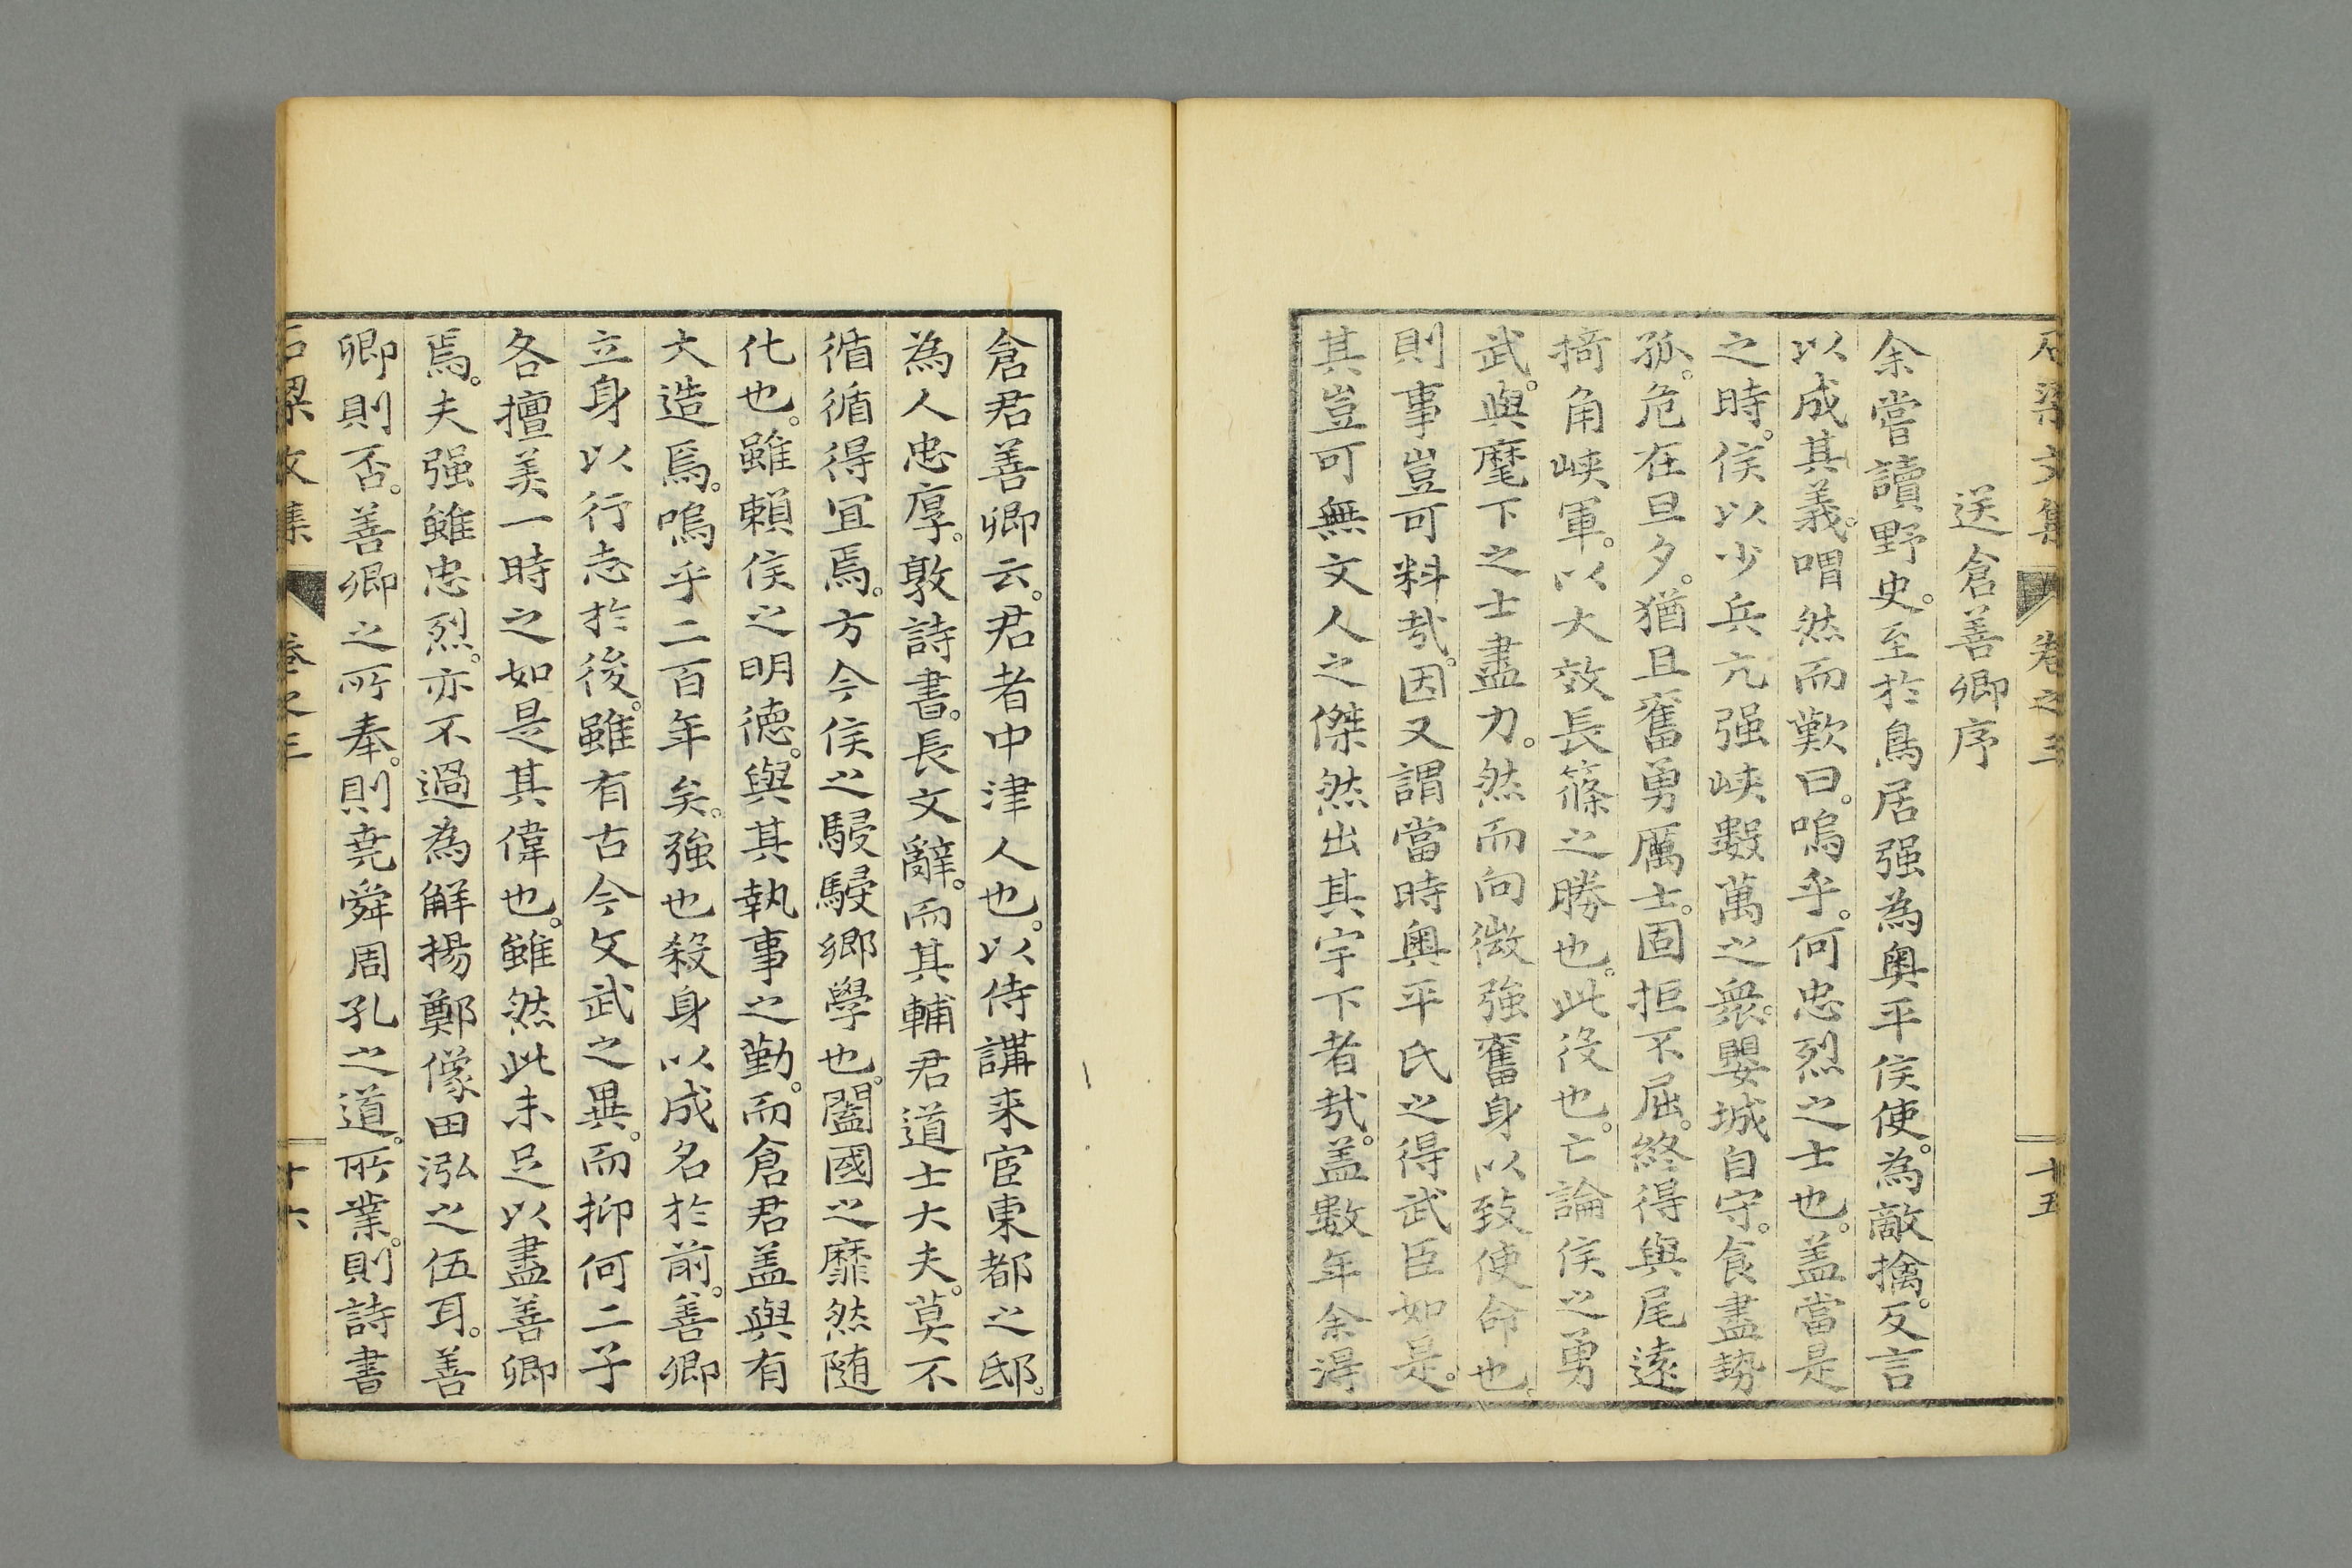 石梁文集 卷之三 十五
送倉善卿序
余嘗讀野史。至於鳥居强為奥平侯使。為敵擒。反言
以成其義。喟然而歎曰。嗚乎。何忠烈之士也。盖當是
之時。侯以少兵亢强峡數萬之衆。嬰城自守。食盡勢
孤。危在旦夕。猶且奮勇厲士。固拒不屈。終得與尾遠
掎角峡軍。以大效長篠之勝也。此役也。亡論侯之勇
武。與麾下之士盡力。然而向微強奮身以致使命也。
則事豈可料哉。因又謂當時奥平氏之得武臣如是。
其豈可無文人之傑然出其宇下者哉。盖數年余得
倉君善卿云。君者中津人也。以侍講来宦東都之邸。
為人忠厚。敦詩書。長文辭。而其輔君道士大夫。莫不
循循得冝焉。方今侯之駸駸鄉學也。闔國之靡然随
化也。雖賴侯之明德。與其執事之勤。而倉君盖與有
大造焉。嗚乎二百年矣。強也殺身以成名於前。善卿
立身以行志於後。雖有古今文武之異。而抑何二子
各擅美一時之如是其偉也。雖然此未足以盡善卿
焉。夫强雖忠烈。亦不過為解揚鄭儫田泓之伍耳。善
卿則否。善卿之所奉。則尭舜周孔之道。所業。則詩書
石梁文集 卷之三 十六